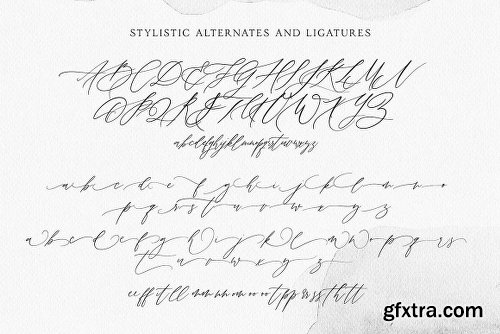 STYLISTIC ALTERNATES AND LIGATURES
A B C D E F G H I J K L M N
O P Q R S T U V W X Y Z
a b c d e f g h i j k l m n o p q r s t u v w x y z
a b c d e f g h i j k l m n o
p q r s t u v w x y z
a b c d e f g h i j k l m n o p q r s
t u v w x y z
gfxtra.com